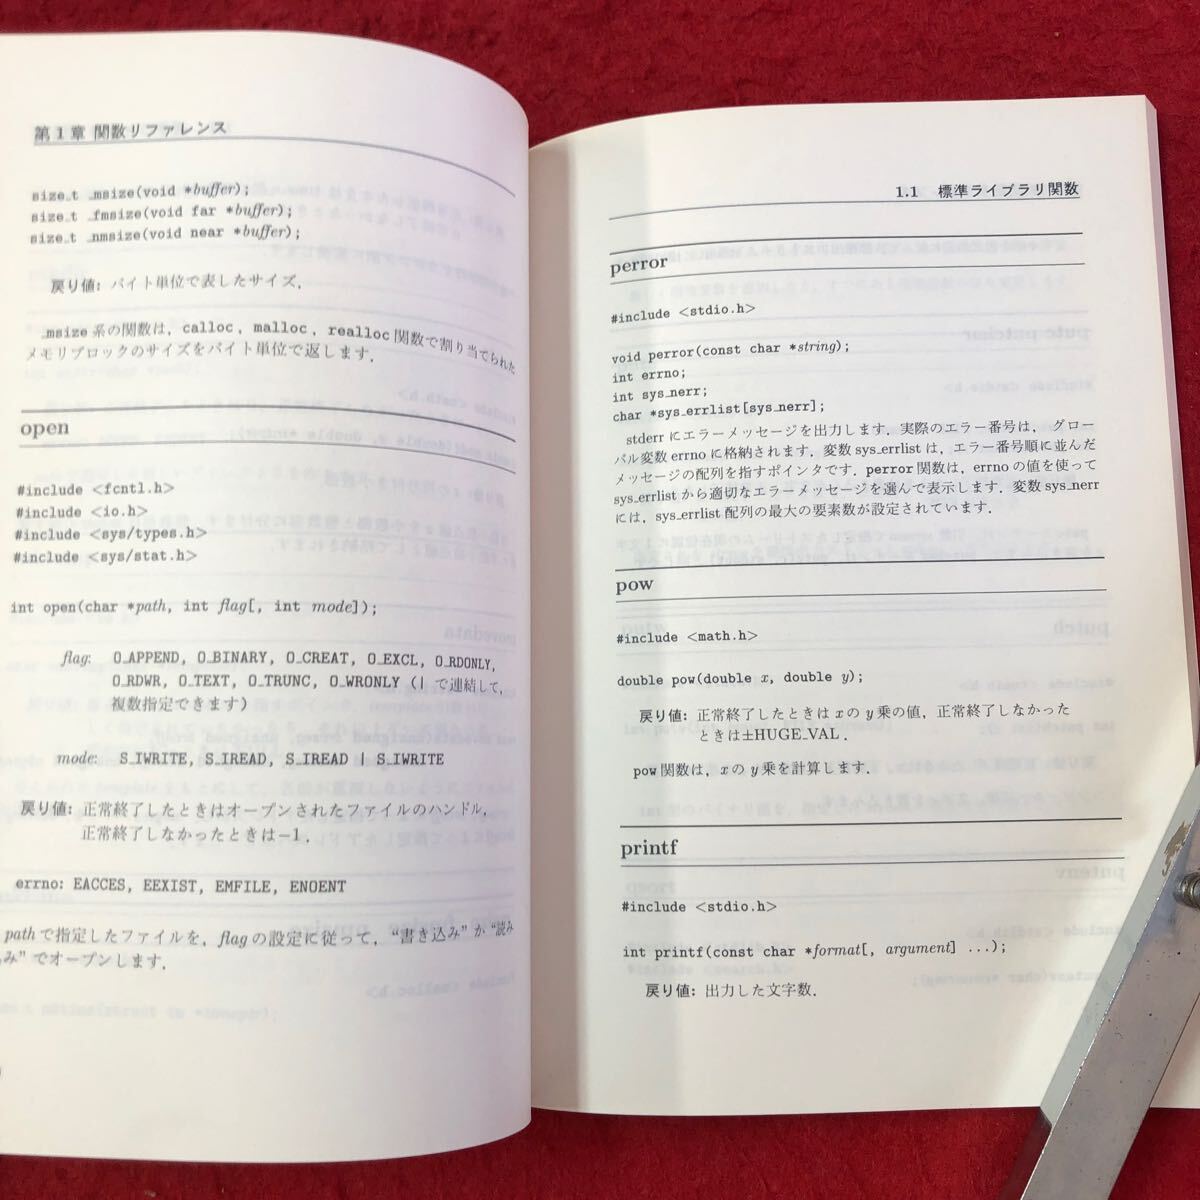 第1章 関数リファレンス
size_t _msize(void *buffer);
size_t _fmsize(void far *buffer);
size_t _nmsize(void near *buffer);
戻り値: バイト単位で表したサイズ.
_msize 系の関数は, calloc, malloc, realloc 関数で割り当てられた
メモリブロックのサイズをバイト単位で返します.
open
#include <fcntl.h>
#include <io.h>
#include <sys/types.h>
#include <sys/stat.h>
int open(char *path, int flag[, int mode]);
flag: O_APPEND, O_BINARY, O_CREAT, O_EXCL, O_RDONLY,
O_RDWR, O_TEXT, O_TRUNC, O_WRONLY (| で連結して,
複数指定できます)
mode: S_IWRITE, S_IREAD, S_IREAD | S_IWRITE
戻り値: 正常終了したときはオープンされたファイルのハンドル,
正常終了しなかったときは−1.
errno: EACCES, EEXIST, EMFILE, ENOENT
pathで指定したファイルを, flagの設定に従って, “書き込み”か“読み
み”でオープンします.
1.1 標準ライブラリ関数
perror
#include <stdio.h>
void perror(const char *string);
int errno;
int sys_nerr;
char *sys_errlist[sys_nerr];
stderr にエラーメッセージを出力します. 実際のエラー番号は, グロー
バル変数 errno に格納されます. 変数 sys_errlist は, エラー番号順に並んだ
メッセージの配列を指すポインタです. perror 関数は, errno の値を使って
sys_errlist から適切なエラーメッセージを選んで表示します. 変数 sys_nerr
には, sys_errlist 配列の最大の要素数が設定されています.
pow
#include <math.h>
double pow(double x, double y);
戻り値: 正常終了したときは x の y 乗の値, 正常終了しなかった
ときは±HUGE_VAL.
pow 関数は, x の y 乗を計算します.
printf
#include <stdio.h>
int printf(const char *format[, argument] ...);
戻り値: 出力した文字数.